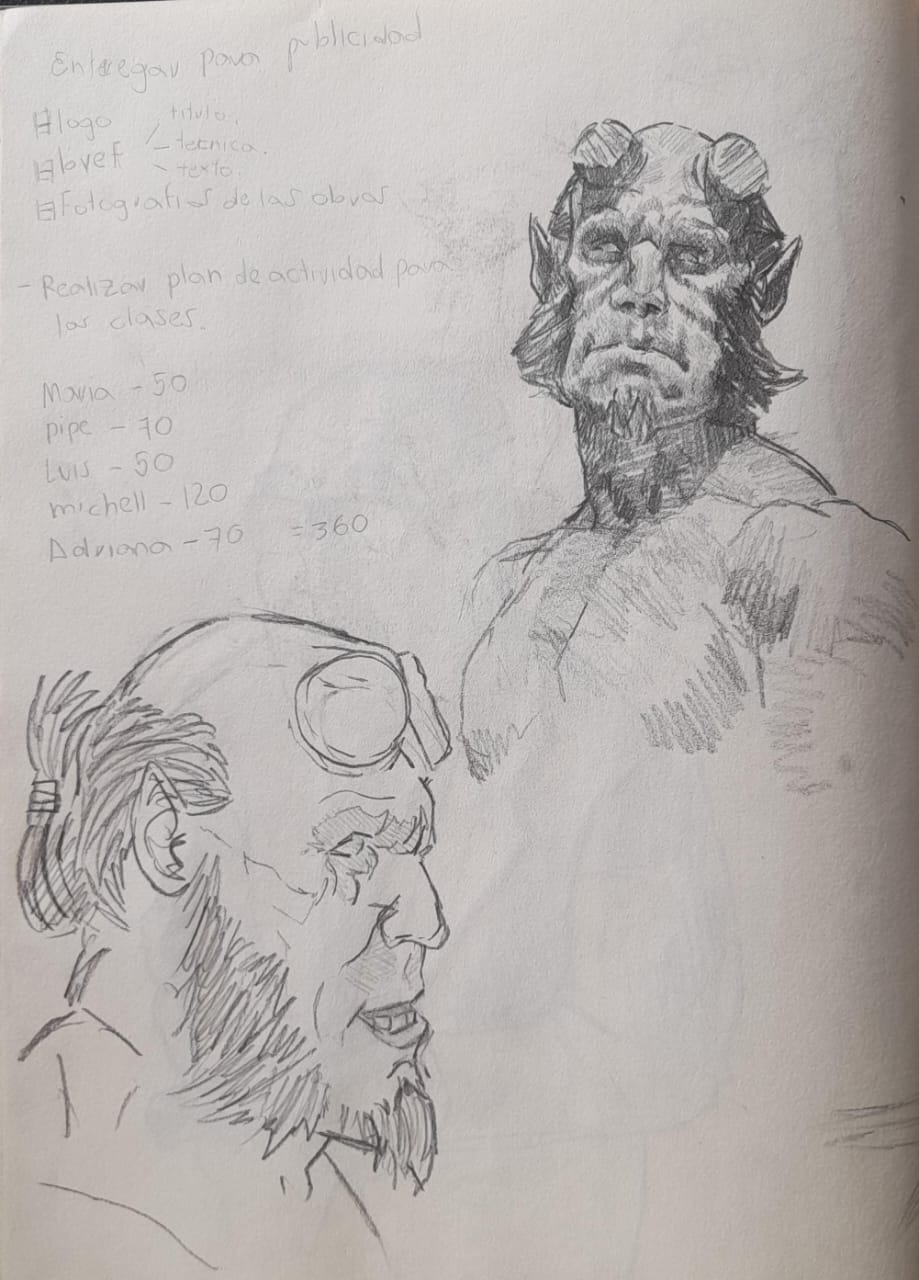 Entregar para publicidad
logo
titulo.
bref - tecnica.
- texto.
Fotografias de las obras
- Realizar plan de actividad para
las clases.
Maria - 50
pipe - 70
Luis - 50
michell - 120
Adriana - 70 = 360